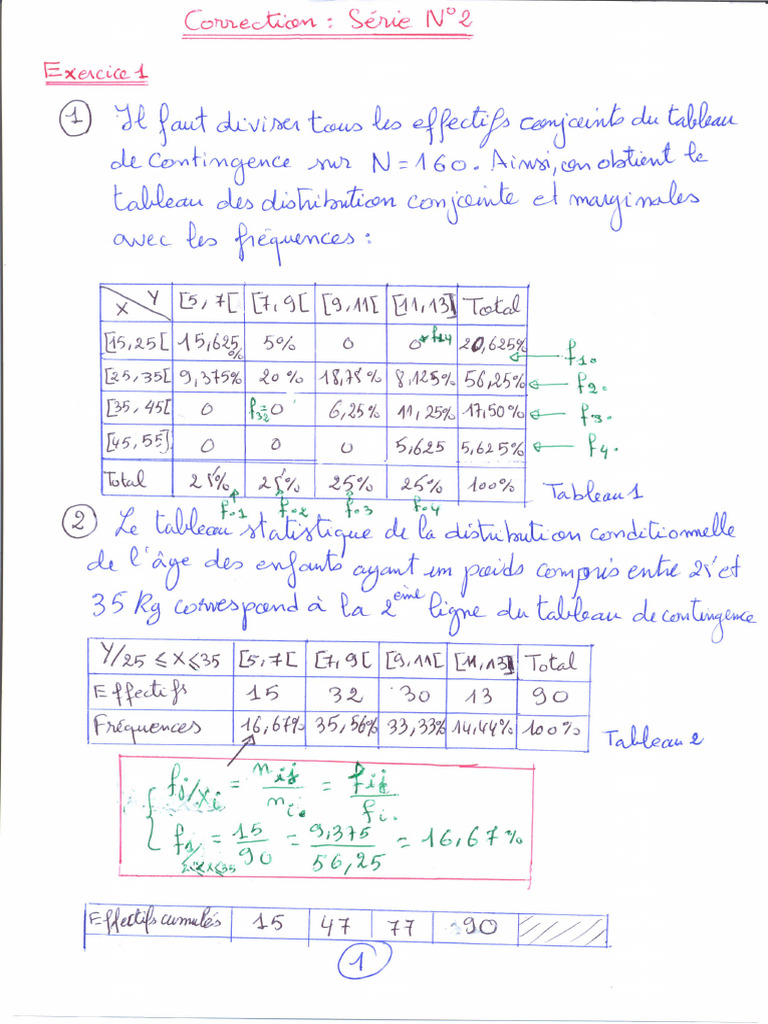 Correction : Série N°2
Exercice 1
① Il faut diviser tous les effectifs conjoints du tableau
de contingence sur N = 160. Ainsi, on obtient le
tableau des distribution conjointe et marginales
avec les fréquences :
X Y [5, 7[ [7, 9[ [9, 11[ [11, 13] Total
[15, 25[ 15,625% 5% 0 0 f14 20,625% ← f1.
[25, 35[ 9,375% 20% 18,75% 8,125% 56,25% ← f2.
[35, 45[ 0 f32=0 6,25% 11,25% 17,50% ← f3.
[45, 55] 0 0 0 5,625 5,625% ← f4.
Total 25% 25% 25% 25% 100%
f.1 f.2 f.3 f.4 Tableau 1
② Le tableau statistique de la distribution conditionnelle
de l'âge des enfants ayant un poids compris entre 25 et
35 Kg correspond à la 2ème ligne du tableau de contingence
Y/25 ≤ X ≤ 35 [5, 7[ [7, 9[ [9, 11[ [11, 13] Total
Effectifs 15 32 30 13 90
Fréquences 16,67% 35,56% 33,33% 14,44% 100%
Tableau 2
fj/xi = nij/ni. = fij/fi.
f1/25≤X≤35 = 15/90 = 9,375/56,25 = 16,67%
Effectifs cumulés 15 47 77 90
1